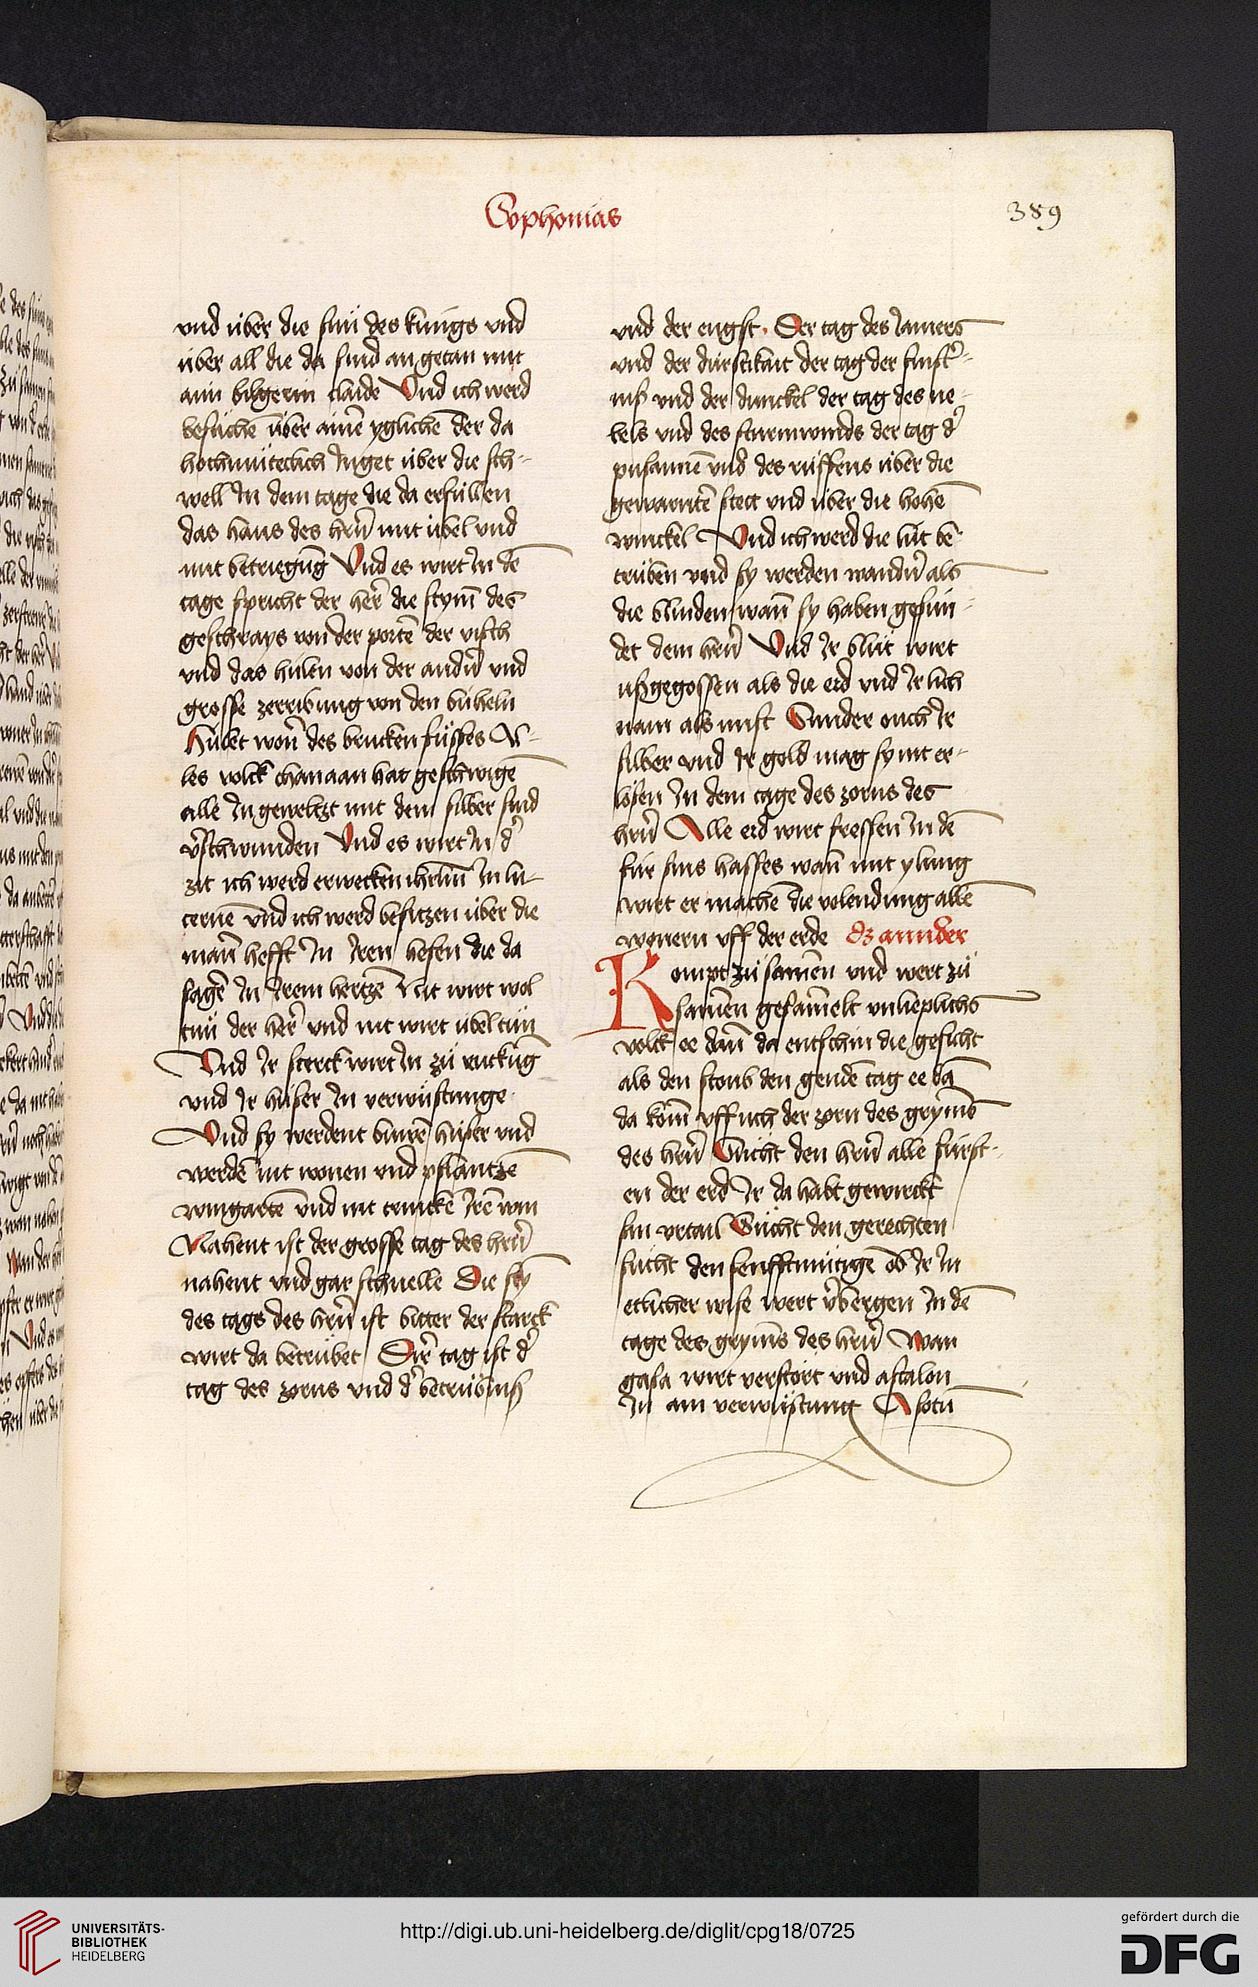 Sophonias
389
vnd über die sün des kungs vnd
über all die da sind an getan mit
aim bilgerin claide Vnd ich werd
besuchē über ainē yglichē der da
hochmüteclich Inget über die sch-
well In dem tage die da erfüllen
das haus des hrn̄ mit übel vnd
mit betriegūg Vnd es wirt In dē
tage spricht der her̄ die stym̄ des
geschrays von der portē der visch
vnd das hülen von der andn̄ vnd
grosse zerribung von den büheln
Hület won̄ des brucken füsses Al-
les volck chanaan hat geschwigē
alle In gewelczt mit dem silber sind
v̉schwunden Vnd es wirt In d̉
zit ich werd erwecken ihrlm̄ In lu-
cernē vnd ich werd besitzen über die
man̄ hefft In Iren hefen die da
sagē In Irem hertzē Nit wirt wol
tun der her̄ vnd nit wirt übel tun
Vnd Ir sterck wirt In zü ruckūg
vnd Ir hüser In verwüstunge
Vnd sy werdent buwē hüser vnd
werdē nit wonen vnd pflantzē
wingartē vnd nit trinckē Irē win
Nahent ist der grosse tag des hrn̄
nahent vnd gar schnelle Die sty̅
des tags des hrn̄ ist bitter der starck
wirt da betrübet Dirr̄ tag ist d̉
tag des zorns vnd d̉ betrübniß
vnd der engst. Der tag des Iamers
vnd der dürstikait der tag der finst̉-
niß vnd der dunckel der tag des ne-
bels vnd des sturmwinds der tag d̉
pusamē vnd des rüffens über die
gewarntē stett vnd über die hohē
winckel Vnd ich werd die lüt be-
trüben vnd sy werden wandn̄ als
die blinden wan̄ sy haben gesün-
det dem hrn̄ Vnd Ir blüt wirt
ußgegossen als die erd vnd Ir lich
nam als mist Sunder ouch Ir
silber vnd Ir gold mag sy nit er-
lösen In dem tage des zorns des
hrn̄ Alle erd wirt fressen In dē
für sins hasses wan̄ mit ylung
wirt er machē die volendung allē
wonern vff der erde Dz annder
Kompt zü samēn vnd wert zü
samēn gesam̄elt vnlieplichs
volck ee dan̄ da entschin die gesicht
als den stoub den gendē tag ee dā
da köm̄ vff uch der zorn des gryms̄
des hrn̄ Sücht den hrn̄ alle fürst-
en der erd Ir da habt gewirckt
sin vrtail Sücht den gerechten
sücht den senfftmütigē ob Ir In
etlicher wise wert v̉bergen In dē
tage des gryms̄ des hrn̄ Wan
gasa wirt verstört vnd ascalon
In ain verwüstung Asotū
UNIVERSITÄTS-
BIBLIOTHEK
HEIDELBERG
http://digi.ub.uni-heidelberg.de/diglit/cpg18/0725
gefördert durch die
DFG